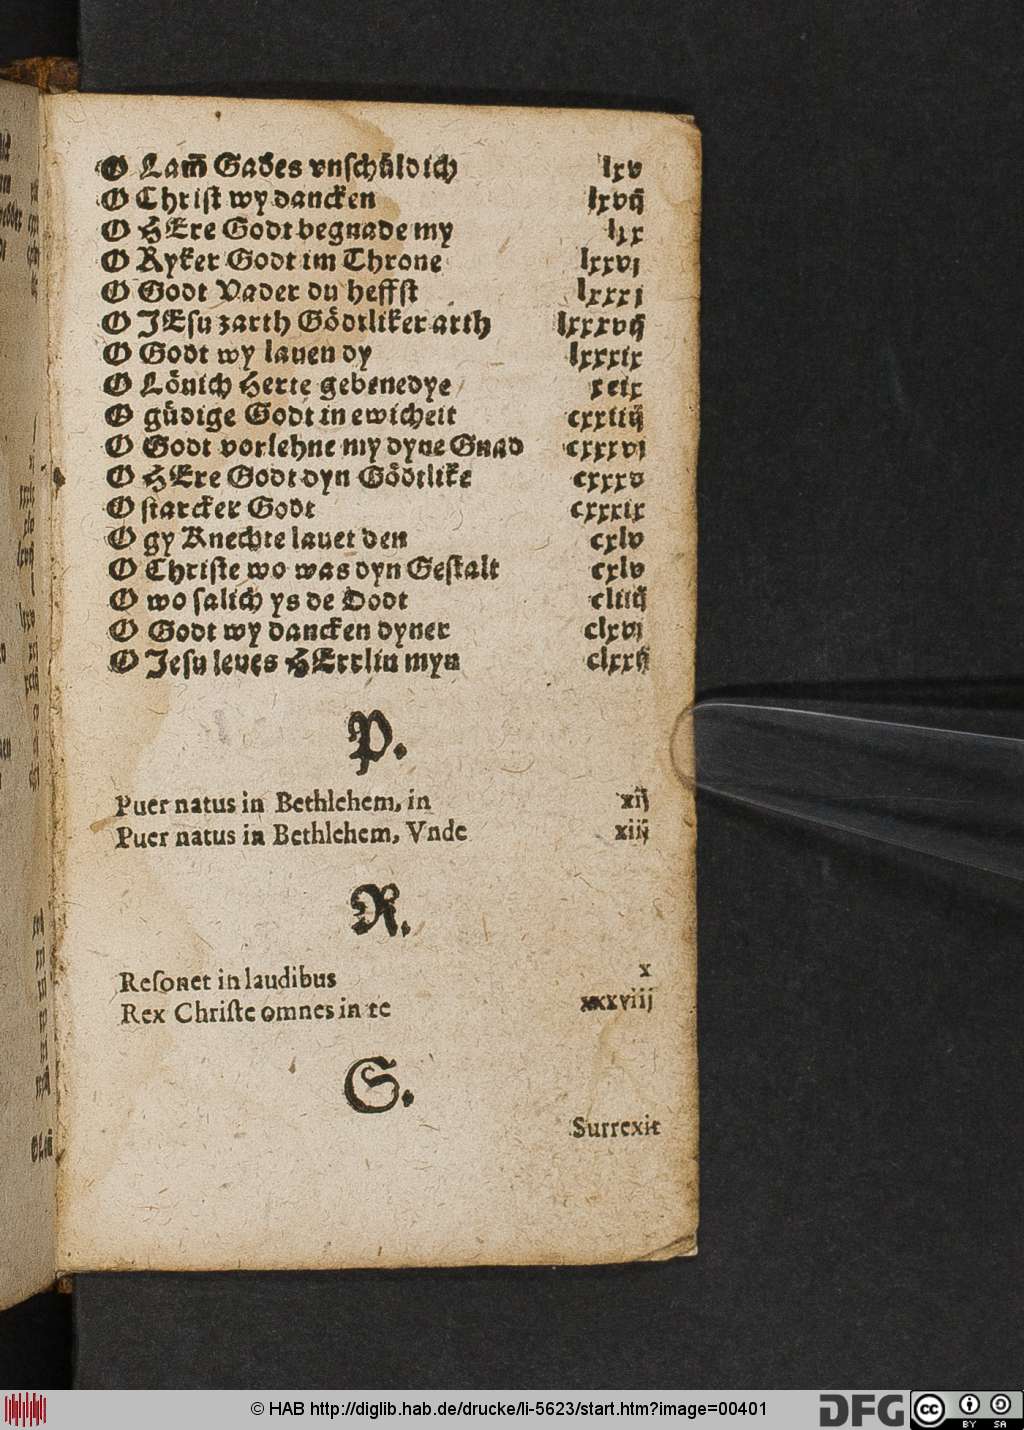 O Lam̄ Gades vnschüldich lxv
O Christ wy dancken lxvij
O HEre Godt begnade my lxx
O Ryker Godt im Throne lxxvj
O Godt Vader du heffst lxxxj
O JEsu zarth Gödtliker arth lxxxvij
O Godt wy lauen dy lxxxix
O Löuich Herte gebenedye xcix
O güdige Godt in ewicheit cxxiiij
O Godt vorlehne my dyne Gnad cxxxvj
O HEre Godt dyn Gödtlike cxxxv
O starcker Godt cxxxix
O gy Knechte lauet den cxlv
O Christe wo was dyn Gestalt cxlv
O wo salich ys de Dodt cliiij
O Godt wy dancken dyner clxvj
O Jesu leues HErrlin myn clxxij
P.
Puer natus in Bethlehem, in xij
Puer natus in Bethlehem, Vnde xiij
R.
Resonet in laudibus x
Rex Christe omnes in te xxxviij
S.
Surrexit
© HAB http://diglib.hab.de/drucke/li-5623/start.htm?image=00401
DFG
cc BY SA